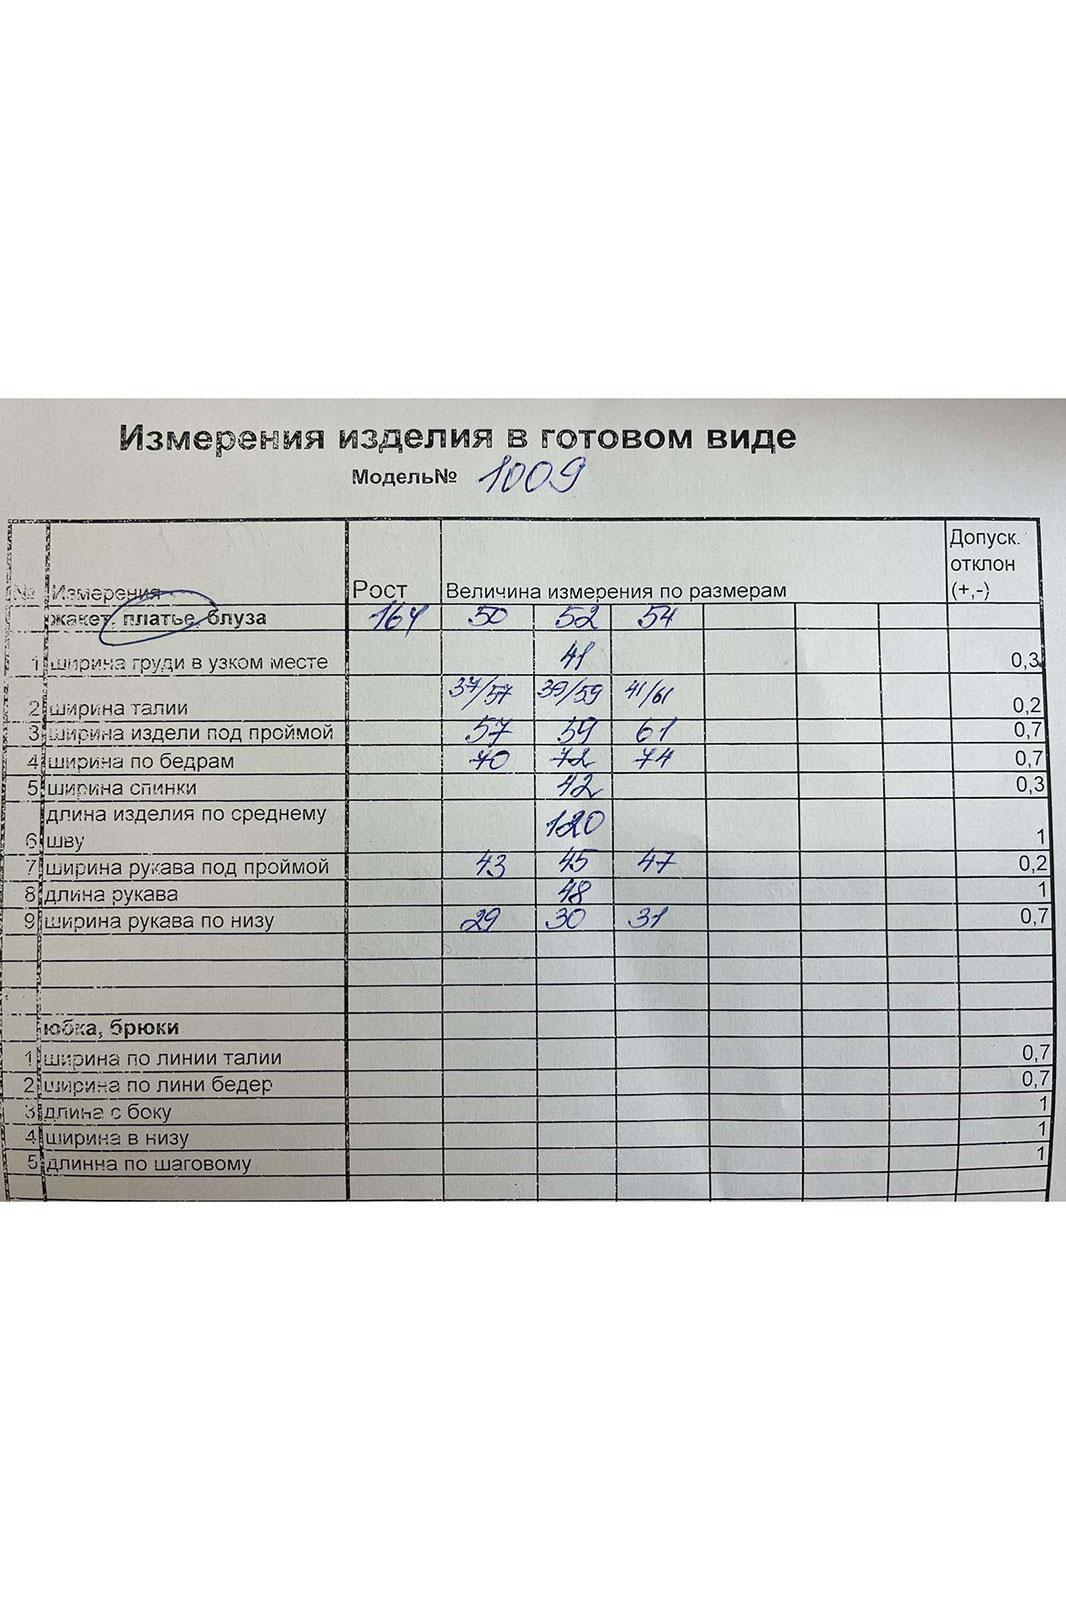 Измерения изделия в готовом виде
Модель№ 1009
№ Измерения Рост Величина измерения по размерам Допуск. отклон (+,-)
жакет, платье, блуза 164 50 52 54
1 ширина груди в узком месте 41 0,3
2 ширина талии 37/57 39/59 41/61 0,2
3 ширина издели под проймой 57 59 61 0,7
4 ширина по бедрам 70 72 74 0,7
5 ширина спинки 42 0,3
6 длина изделия по среднему шву 120 1
7 ширина рукава под проймой 43 45 47 0,2
8 длина рукава 48 1
9 ширина рукава по низу 29 30 31 0,7
юбка, брюки
1 ширина по линии талии 0,7
2 ширина по лини бедер 0,7
3 длина с боку 1
4 ширина в низу 1
5 длинна по шаговому 1